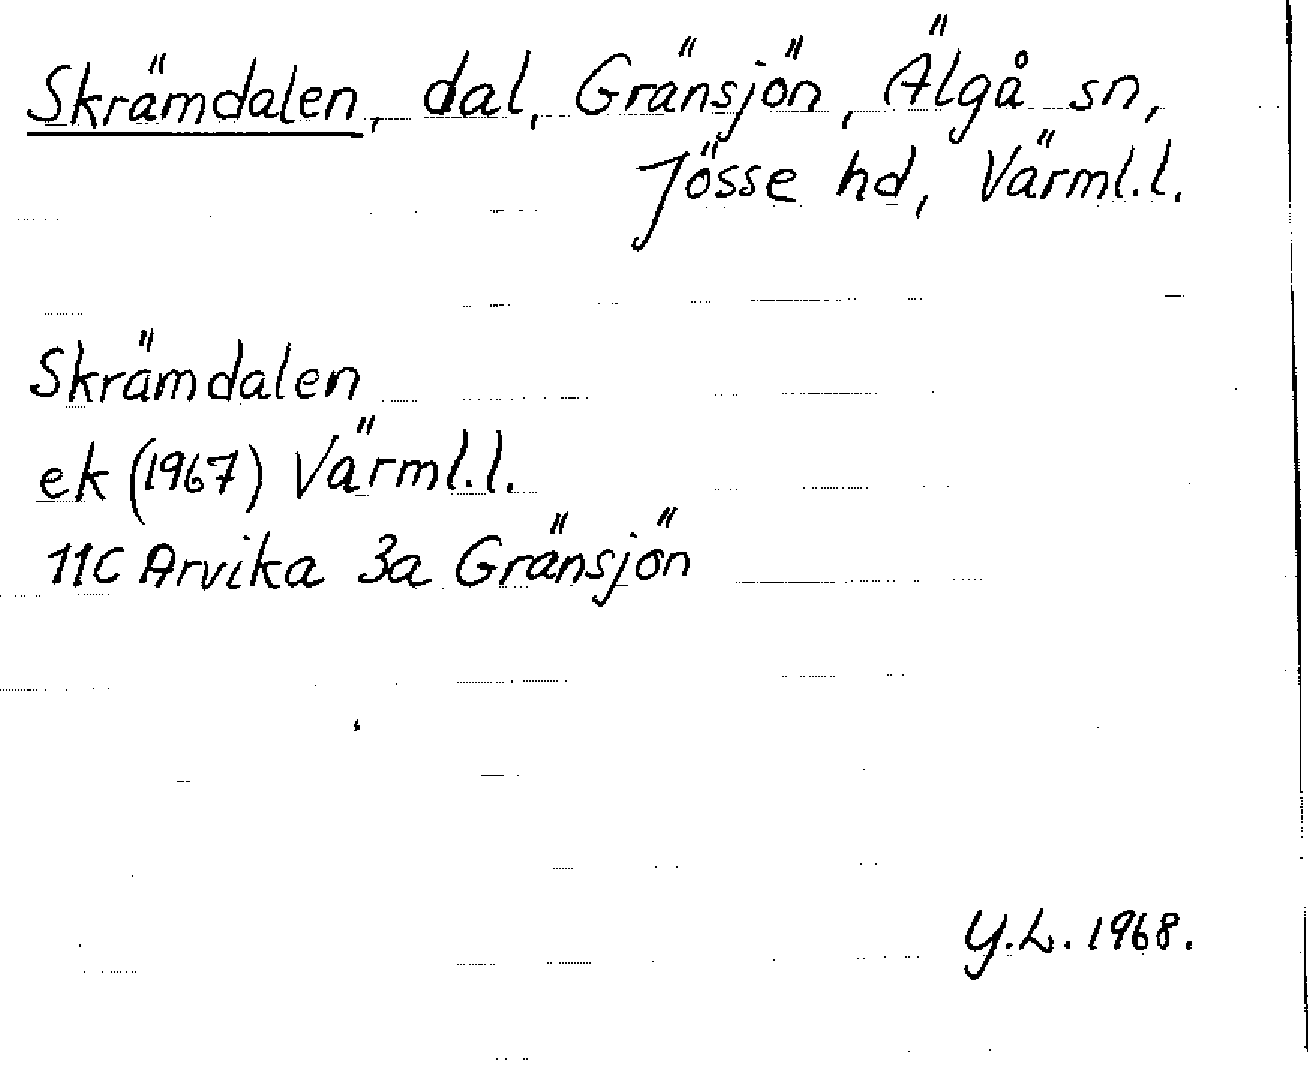 Skrämdalen, dal, Gränsjön, Älgå sn,
Jösse hd, Värml.l.
Skrämdalen
ek (1967) Värml.l.
11C Arvika 3a Gränsjön
Y.L. 1968.